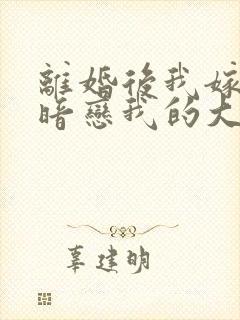 離婚後我嫁
暗戀我的大
辜建明